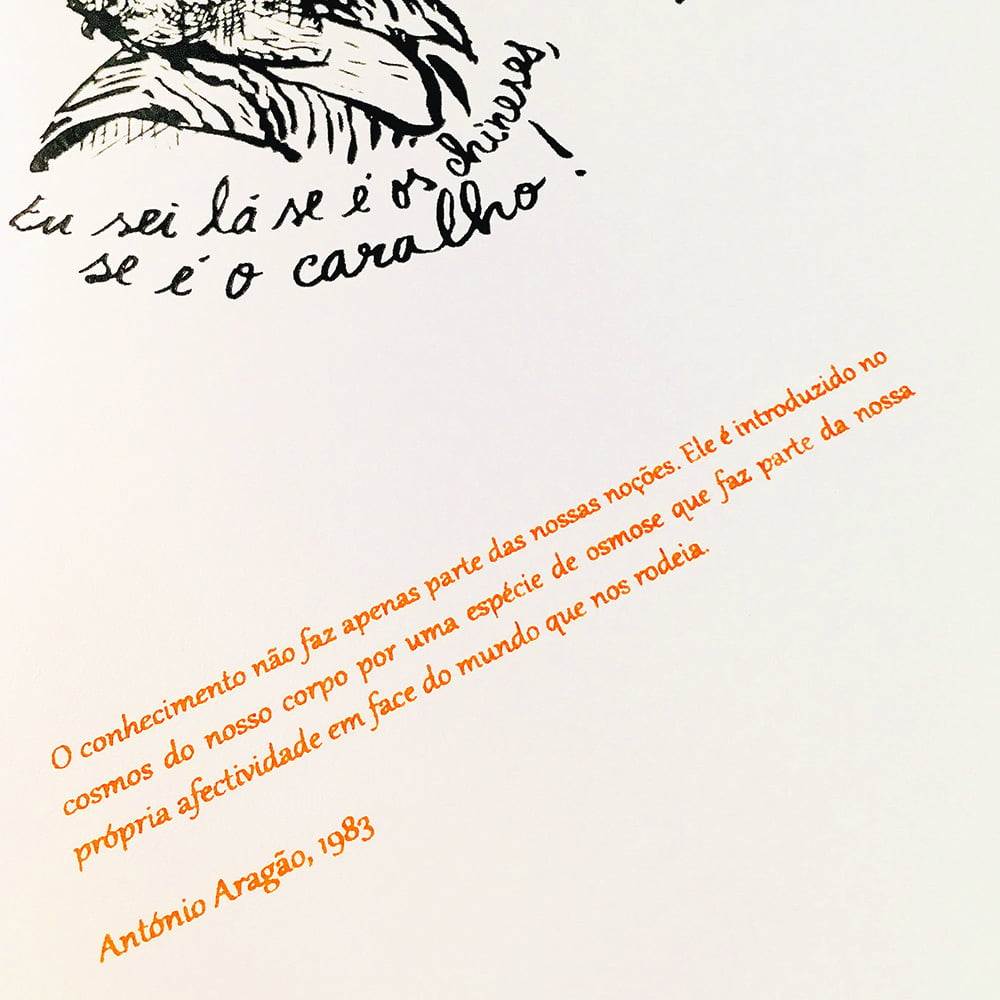 Eu sei lá se é os chineses,
se é o caralho!
O conhecimento não faz apenas parte das nossas noções. Ele é introduzido no
cosmos do nosso corpo por uma espécie de osmose que faz parte da nossa
própria afectividade em face do mundo que nos rodeia.
António Aragão, 1983